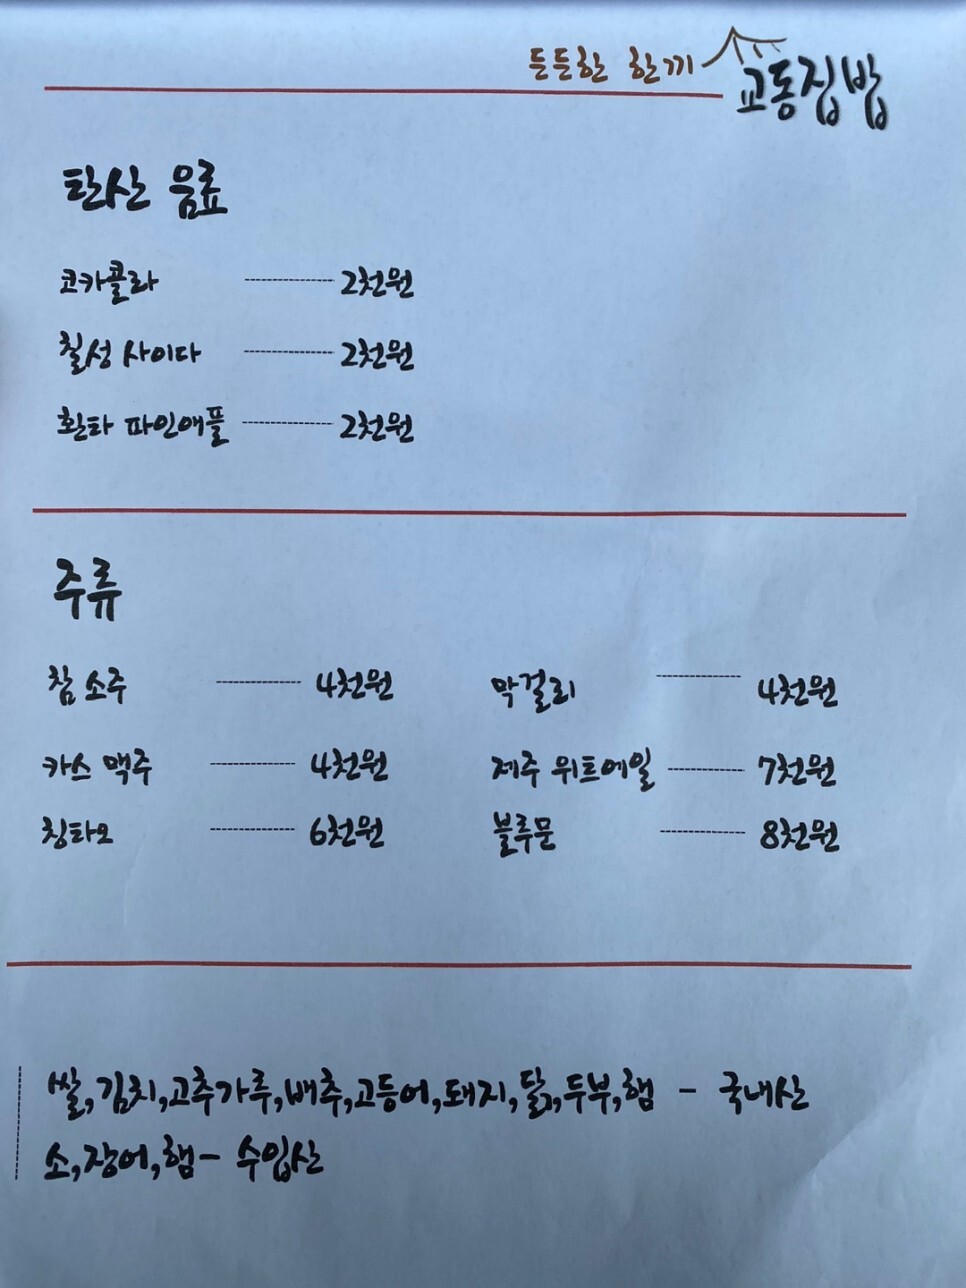 든든한 한끼 교동집밥
탄산 음료
코카콜라 2천원
칠성 사이다 2천원
환타 파인애플 2천원
주류
참 소주 4천원 막걸리 4천원
카스 맥주 4천원 제주 위트에일 7천원
칭타오 6천원 블루문 8천원
쌀,김치,고추가루,배추,고등어,돼지,닭,두부,햄 - 국내산
소,장어,햄- 수입산